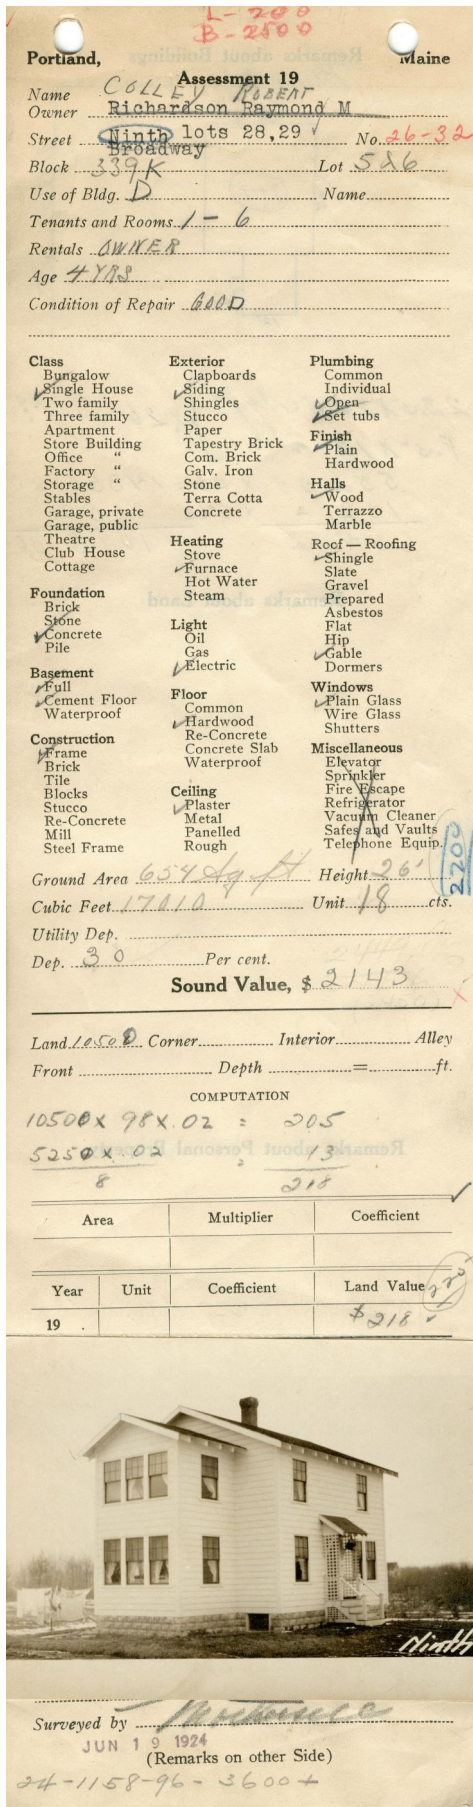 L-200
B-2500
Portland, Maine
Assessment 19
Name COLLEY ROBERT
Owner Richardson Raymond M
Street Ninth lots 28,29 No. 26-32
Broadway
Block 339K Lot 5&6
Use of Bldg. D Name
Tenants and Rooms 1-6
Rentals OWNER
Age 4 YRS
Condition of Repair GOOD
Class
Bungalow
Single House
Two family
Three family
Apartment
Store Building
Office "
Factory "
Storage "
Stables
Garage, private
Garage, public
Theatre
Club House
Cottage
Foundation
Brick
Stone
Concrete
Pile
Basement
Full
Cement Floor
Waterproof
Construction
Frame
Brick
Tile
Blocks
Stucco
Re-Concrete
Mill
Steel Frame
Exterior
Clapboards
Siding
Shingles
Stucco
Paper
Tapestry Brick
Com. Brick
Galv. Iron
Stone
Terra Cotta
Concrete
Heating
Stove
Furnace
Hot Water
Steam
Light
Oil
Gas
Electric
Floor
Common
Hardwood
Re-Concrete
Concrete Slab
Waterproof
Ceiling
Plaster
Metal
Panelled
Rough
Plumbing
Common
Individual
Open
Set tubs
Finish
Plain
Hardwood
Halls
Wood
Terrazzo
Marble
Roof — Roofing
Shingle
Slate
Gravel
Prepared
Asbestos
Flat
Hip
Gable
Dormers
Windows
Plain Glass
Wire Glass
Shutters
Miscellaneous
Elevator
Sprinkler
Fire Escape
Refrigerator
Vacuum Cleaner
Safes and Vaults
Telephone Equip.
2200
Ground Area 654 Sq ft Height 26'
Cubic Feet 17010 Unit 18 cts.
Utility Dep.
Dep. 30 Per cent.
Sound Value, $ 2143
Land 10500 Corner Interior Alley
Front Depth = ft.
COMPUTATION
10500 X 98 X .02 = 205
5250 X .02 = 13
8 218
Area Multiplier Coefficient
Year Unit Coefficient Land Value
225
19 . $218
Ninth
Surveyed by
JUN 19 1924
(Remarks on other Side)
24-1158-96-3600+